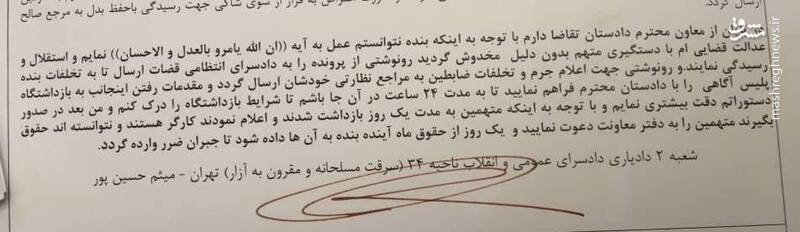 ارسال گردد.
قرار از سوی شاکی جهت رسیدگی باحفظ بدل به مرجع صالح
از معاون محترم دادستان تقاضا دارم با توجه به اینکه بنده نتوانستم عمل به آیه ((ان الله یامرو بالعدل و الاحسان)) نمایم و استقلال و
عدالت قضایی ام با دستگیری متهم بدون دلیل مخدوش گردید رونوشتی از پرونده را به دادسرای انتظامی قضات ارسال تا به تخلفات بنده
رسیدگی نمایند.و رونوشتی جهت اعلام جرم و تخلفات ضابطین به مراجع نظارتی خودشان ارسال گردد و مقدمات رفتن اینجانب به بازداشتگاه
پلیس آگاهی را با دادستان محترم فراهم نمایید تا به مدت ۲۴ ساعت در آن جا باشم تا شرایط بازداشتگاه را درک کنم و من بعد در صدور
دستوراتم دقت بیشتری نمایم و با توجه به اینکه متهمین به مدت یک روز بازداشت شدند و اعلام نمودند کارگر هستند و نتوانسته اند حقوق
بگیرند متهمین را به دفتر معاونت دعوت نمایید و یک روز از حقوق ماه آینده بنده به آن ها داده شود تا جبران ضرر وارده گردد.
شعبه ۲ دادیاری دادسرای عمومی و انقلاب ناحیه ۳۴ (سرقت مسلحانه و مقرون به آزار) تهران - میثم حسین پور
مشرق
mashreghnews.ir